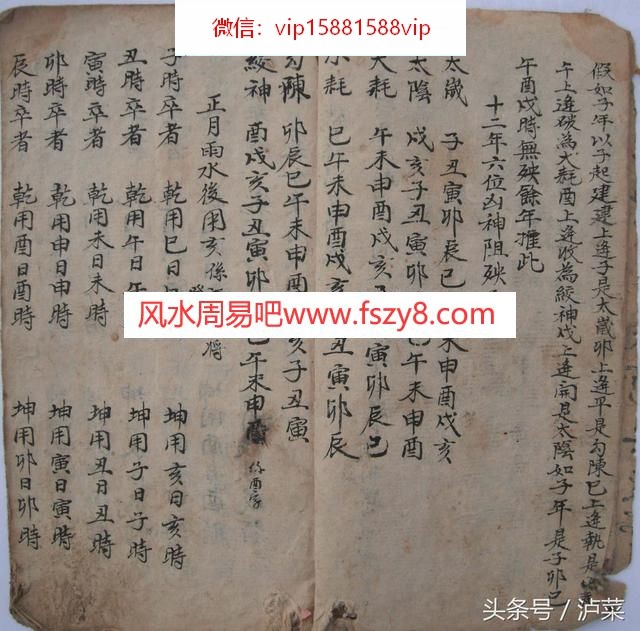 微信：vip15881588vip
假如子年以子起建建上逢子是太歲卯上逢平是勾陳巳上逢執是
午上逢破為大耗酉上逢收為絞神戌上逢開是太陰如子年是子卯巳
午酉戌時無殃餘年推此
十二年六位凶神阻殃
太歲 子丑寅卯辰巳 未申酉戌亥
太陰 戌亥子丑寅卯 巳午未申酉
大耗 午未申酉戌亥 寅卯辰巳
小耗 巳午未申酉戌亥 丑寅卯辰
勾陳 卯辰巳午未申酉 亥子丑寅
絞神 酉戌亥子丑寅卯 巳午未申
正月雨水後用亥係 將
子時卒者 乾用巳日 坤用亥日亥時
丑時卒者 乾用午日午 坤用子日子時
寅時卒者 乾用未日未時 坤用丑日丑時
卯時卒者 乾用申日申時 坤用寅日寅時
辰時卒者 乾用酉日酉時 坤用卯日卯時
风水周易吧www.fszy8.com
头条号／泸菜